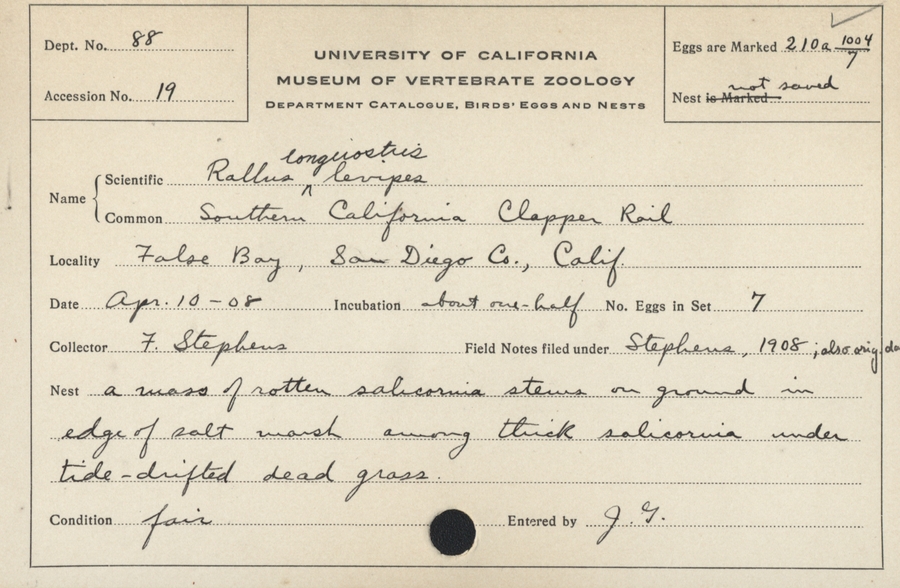 Dept. No. 88
Accession No. 19
UNIVERSITY OF CALIFORNIA
MUSEUM OF VERTEBRATE ZOOLOGY
DEPARTMENT CATALOGUE, BIRDS' EGGS AND NESTS
Eggs are Marked 210a 1004/7
Nest is Marked not saved
longirostris
Name Scientific Rallus ^ levipes
Common Southern California Clapper Rail
Locality False Bay, San Diego Co., Calif.
Date Apr. 10-08 Incubation about one-half No. Eggs in Set 7
Collector F. Stephens Field Notes filed under Stephens, 1908; also orig. da
Nest a mass of rotten salicornia stems on ground in
edge of salt marsh among thick salicornia under
tide-drifted dead grass.
Condition fair Entered by J. G.